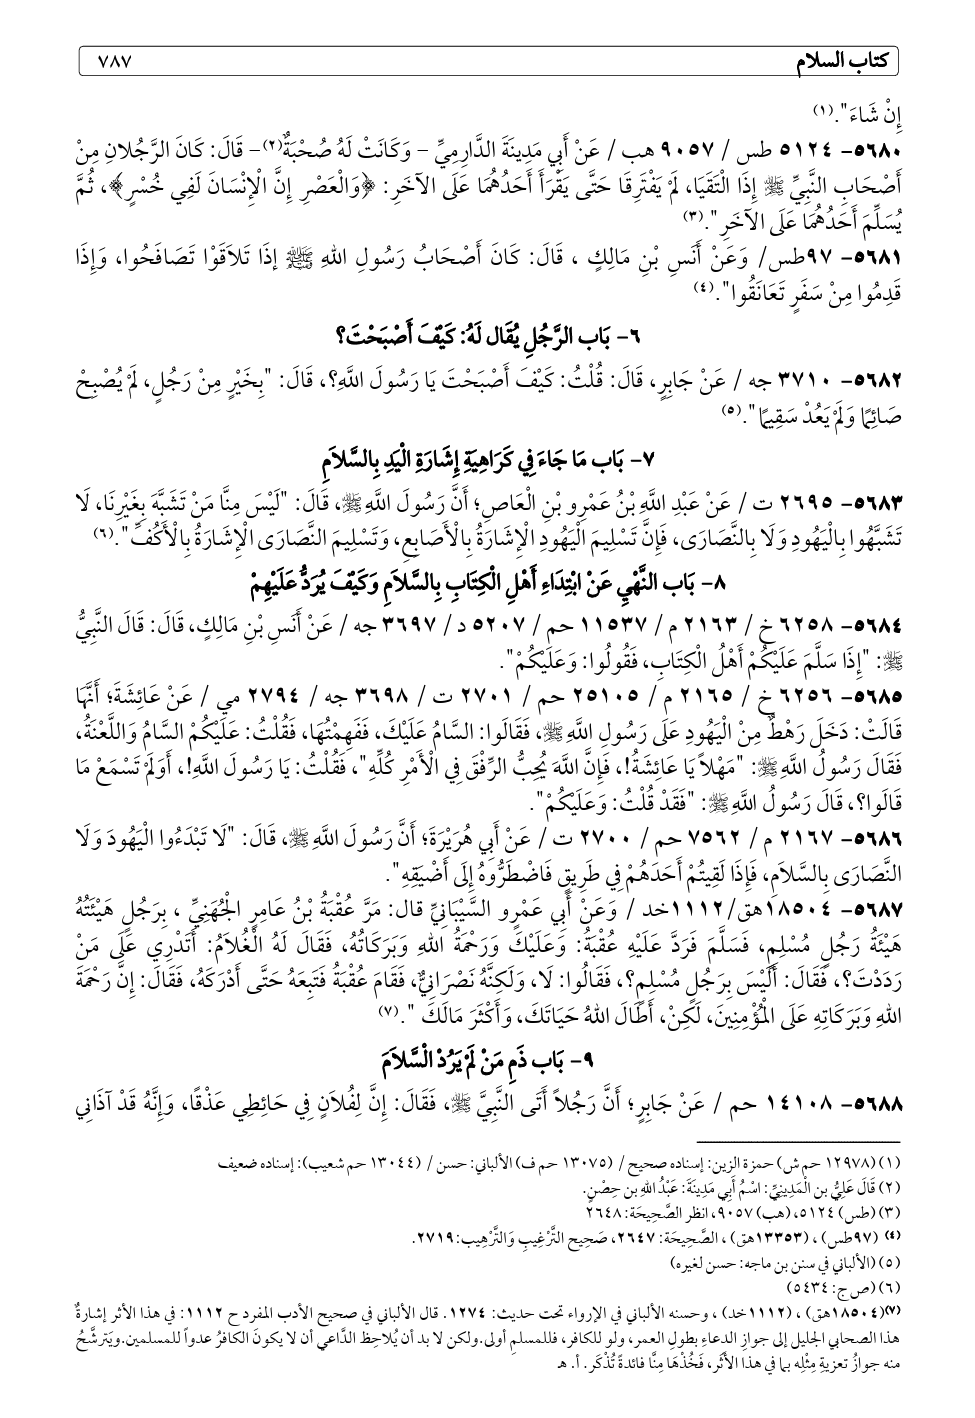 كتاب السلام ٧٨٧
إِنْ شَاءَ".(١)
٥٦٨٠- ٥١٢٤ طس / ٩٠٥٧ هب / عَنْ أَبِي مَدِينَةَ الدَّارِمِيِّ – وَكَانَتْ لَهُ صُحْبَةٌ(٢)– قَالَ: كَانَ الرَّجُلانِ مِنْ
أَصْحَابِ النَّبِيِّ ﷺ إِذَا الْتَقَيَا، لَمْ يَفْتَرِقَا حَتَّى يَقْرَأَ أَحَدُهُمَا عَلَى الآخَرِ: ﴿وَالْعَصْرِ إِنَّ الْإِنْسَانَ لَفِي خُسْرٍ﴾، ثُمَّ
يُسَلِّمَ أَحَدُهُمَا عَلَى الآخَرِ".(٣)
٥٦٨١- ٩٧طس/ وَعَنْ أَنَسِ بْنِ مَالِكٍ ، قَالَ: كَانَ أَصْحَابُ رَسُولِ اللهِ ﷺ إذَا تَلاَقَوْا تَصَافَحُوا، وَإِذَا
قَدِمُوا مِنْ سَفَرٍ تَعَانَقُوا".(٤)
٦- بَاب الرَّجُلِ يُقَال لَهُ: كَيْفَ أَصْبَحْتَ؟
٥٦٨٢- ٣٧١٠ جه / عَنْ جَابِرٍ، قَالَ: قُلْتُ: كَيْفَ أَصْبَحْتَ يَا رَسُولَ اللَّهِ؟، قَالَ: "بِخَيْرٍ مِنْ رَجُلٍ، لَمْ يُصْبِحْ
صَائِمًا وَلَمْ يَعُدْ سَقِيمًا".(٥)
٧- بَاب مَا جَاءَ فِي كَرَاهِيَةِ إِشَارَةِ الْيَدِ بِالسَّلاَمِ
٥٦٨٣- ٢٦٩٥ ت / عَنْ عَبْدِ اللَّهِ بْنُ عَمْرِو بْنِ الْعَاصِ؛ أَنَّ رَسُولَ اللَّهِ ﷺ، قَالَ: "لَيْسَ مِنَّا مَنْ تَشَبَّهَ بِغَيْرِنَا، لَا
تَشَبَّهُوا بِالْيَهُودِ وَلَا بِالنَّصَارَى، فَإِنَّ تَسْلِيمَ الْيَهُودِ الْإِشَارَةُ بِالْأَصَابِعِ، وَتَسْلِيمَ النَّصَارَى الْإِشَارَةُ بِالْأَكُفِّ".(٦)
٨- بَاب النَّهْيِ عَنْ ابْتِدَاءِ أَهْلِ الْكِتَابِ بِالسَّلاَمِ وَكَيْفَ يُرَدُّ عَلَيْهِمْ
٥٦٨٤- ٦٢٥٨ خ / ٢١٦٣ م/ ١١٥٣٧ حم / ٥٢٠٧ د / ٣٦٩٧ جه / عَنْ أَنَسِ بْنِ مَالِكٍ، قَالَ: قَالَ النَّبِيُّ
ﷺ: "إِذَا سَلَّمَ عَلَيْكُمْ أَهْلُ الْكِتَابِ، فَقُولُوا: وَعَلَيْكُمْ".
٥٦٨٥- ٦٢٥٦ خ / ٢١٦٥ م / ٢٥١٠٥ حم / ٢٧٠١ ت / ٣٦٩٨ جه / ٢٧٩٤ مي / عَنْ عَائِشَةَ؛ أَنَّهَا
قَالَتْ: دَخَلَ رَهْطٌ مِنْ الْيَهُودِ عَلَى رَسُولِ اللَّهِ ﷺ، فَقَالُوا: السَّامُ عَلَيْكَ، فَفَهِمْتُهَا، فَقُلْتُ: عَلَيْكُمْ السَّامُ وَاللَّعْنَةُ،
فَقَالَ رَسُولُ اللَّهِ ﷺ: "مَهْلاً يَا عَائِشَةُ!، فَإِنَّ اللَّهَ يُحِبُّ الرِّفْقَ فِي الْأَمْرِ كُلِّهِ"، فَقُلْتُ: يَا رَسُولَ اللَّهِ!، أَوَلَمْ تَسْمَعْ مَا
قَالُوا؟، قَالَ رَسُولُ اللَّهِ ﷺ: "فَقَدْ قُلْتُ: وَعَلَيْكُمْ".
٥٦٨٦- ٢١٦٧ م / ٧٥٦٢ حم / ٢٧٠٠ ت / عَنْ أَبِي هُرَيْرَةَ؛ أَنَّ رَسُولَ اللَّهِ ﷺ، قَالَ: "لَا تَبْدَءُوا الْيَهُودَ وَلَا
النَّصَارَى بِالسَّلاَمِ، فَإِذَا لَقِيتُمْ أَحَدَهُمْ فِي طَرِيقٍ فَاضْطَرُّوهُ إِلَى أَضْيَقِهِ".
٥٦٨٧- ١٨٥٠٤هق/١١١٢خد / وَعَنْ أَبِي عَمْرٍو السَّيْبَانِيِّ قال: مَرَّ عُقْبَةُ بْنُ عَامِرٍ الْجُهَنِيِّ ، بِرَجُلٍ هَيْئَتُهُ
هَيْئَةُ رَجُلٍ مُسْلِمٍ، فَسَلَّمَ فَرَدَّ عَلَيْهِ عُقْبَةُ: وَعَلَيْكَ وَرَحْمَةُ اللهِ وَبَرَكَاتُهُ، فَقَالَ لَهُ الْغُلاَمُ: أَتَدْرِي عَلَى مَنْ
رَدَدْتَ؟، فَقَالَ: أَلَيْسَ بِرَجُلٍ مُسْلِمٍ؟، فَقَالُوا: لَا، وَلَكِنَّهُ نَصْرَانِيٌّ، فَقَامَ عُقْبَةُ فَتَبِعَهُ حَتَّى أَدْرَكَهُ، فَقَالَ: إِنَّ رَحْمَةَ
اللهِ وَبَرَكَاتِهِ عَلَى الْمُؤْمِنِينَ، لَكِنْ، أَطَالَ اللهُ حَيَاتَكَ، وَأَكْثَرَ مَالَكَ ".(٧)
٩- بَاب ذَمِ مَنْ لَمْ يَرُدْ الْسَّلاَمَ
٥٦٨٨- ١٤١٠٨ حم / عَنْ جَابِرٍ؛ أَنَّ رَجُلاً أَتَى النَّبِيَّ ﷺ، فَقَالَ: إِنَّ لِفُلاَنٍ فِي حَائِطِي عَذْقًا، وَإِنَّهُ قَدْ آذَانِي
(١)(١٢٩٧٨ حم ش) حمزة الزين: إسناده صحيح / (١٣٠٧٥ حم ف) الألباني: حسن / (١٣٠٤٤ حم شعيب): إسناده ضعيف
(٢) قَالَ عَلِيُّ بن الْمَدِينِيِّ: اسْمُ أَبِي مَدِينَةَ: عَبْدُ اللهِ بن حِصْنٍ.
(٣)(طس) ٥١٢٤، (هب) ٩٠٥٧، انظر الصَّحِيحَة: ٢٦٤٨
(٤) (٩٧طس) ، (١٣٣٥٣هق) ، الصَّحِيحَة: ٢٦٤٧، صَحِيح التَّرْغِيبِ وَالتَّرْهِيب: ٢٧١٩.
(٥) (الألباني في سنن بن ماجه: حسن لغيره)
(٦) (ص ج: ٥٤٣٤)
(٧)(١٨٥٠٤هق) ، (١١١٢خد) ، وحسنه الألباني في الإرواء تحت حديث: ١٢٧٤. قال الألباني في صحيح الأدب المفرد ح ١١١٢: في هذا الأثر إشارةٌ
هذا الصحابي الجليل إلى جوازِ الدعاءِ بطولِ العمر، ولو للكافر، فللمسلمِ أولى.ولكن لا بد أن يُلاحِظ الدَّاعي أن لا يكونَ الكافرُ عدواً للمسلمين.ويَترشَّحُ
منه جوازُ تعزيةِ مِثْلِه بما في هذا الأثَر، فَخُذْهَا مِنَّا فائدةً تُذْكَر. أ. هـ